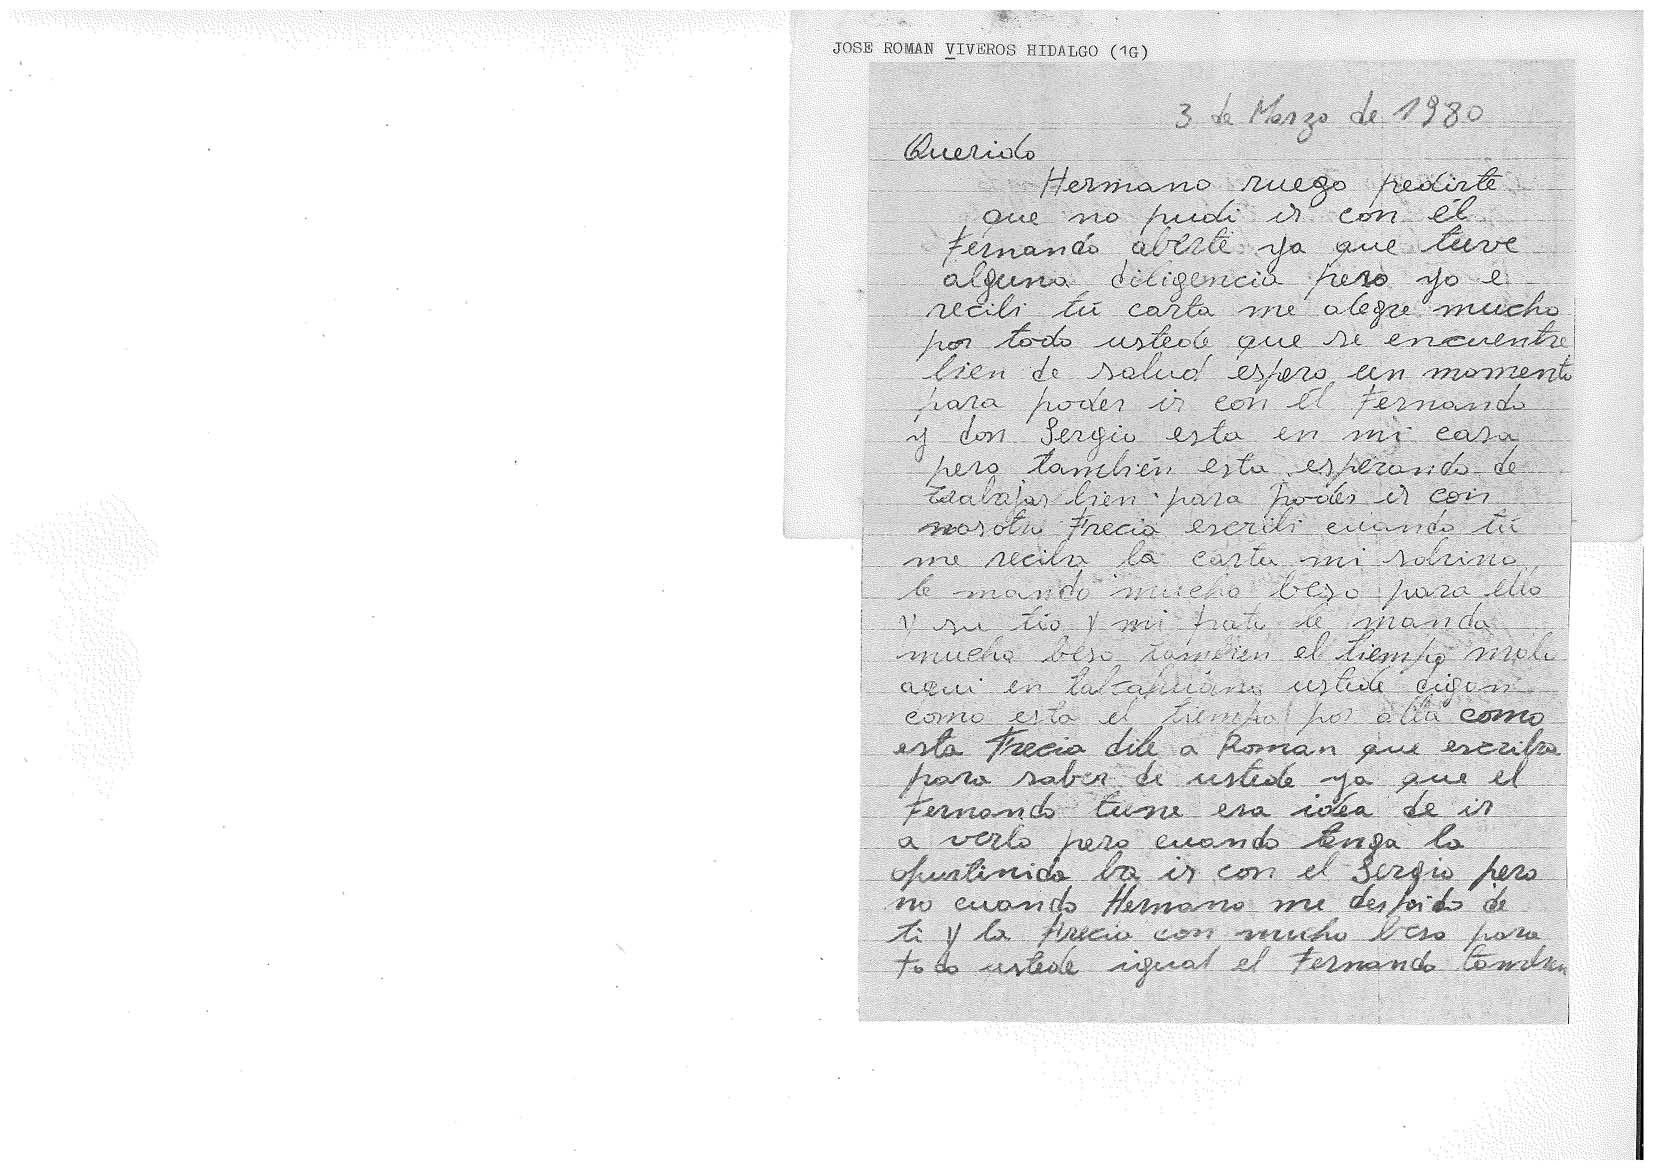 JOSE ROMAN VIVEROS HIDALGO (1G)
3 de Marzo de 1980
Querido
Hermano ruego pedirte
que no pudi ir con él
Fernando ya que tuve
alguna diligencia pero yo e
recibi tú carta me alegre mucho
por todo ustede que se encuentre
bien de salud espero un momento
para poder ir con él Fernando
y don Sergio esta en mi casa
pero también esta esperando de
trabajar bien para poder ir con
nosotro Frecia escribi cuando tú
me reciba la carta mi sobrino
le mando mucho beso para ello
y su tio y mi le manda
mucho beso tambien el tiempo malo
aqui en ustede digan
como esta el tiempo por allá como
esta Frecia dile a Roman que escriba
para saber de ustede ya que el
Fernando tune esa idea de ir
a verlo pero cuando tenga la
oportinida ba ir con el Sergio pero
no cuando Hermano me despido de
ti y la Frecia con mucho beso para
todo ustede igual el Fernando